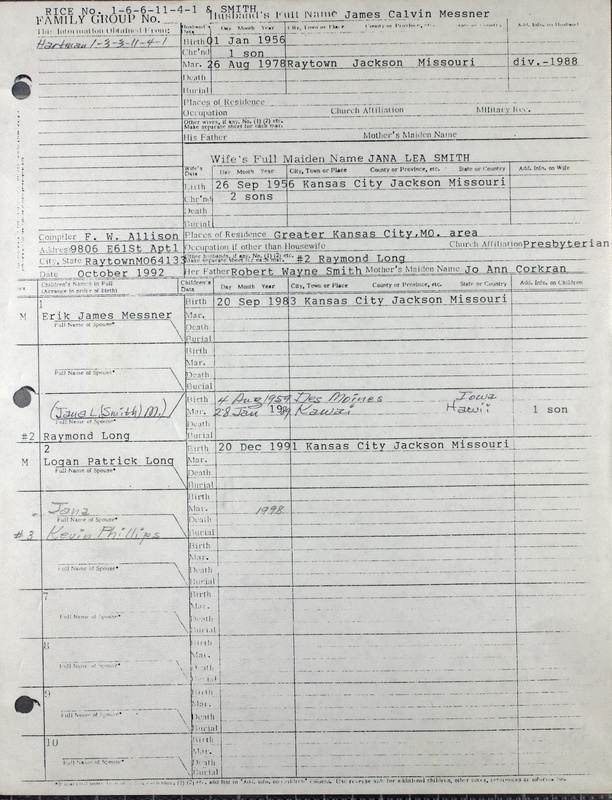 RICE No. 1-6-6-11-4-1 & SMITH
FAMILY GROUP No.
Husband's Full Name James Calvin Messner
This Information Obtained From:
Hartman 1-3-3-11-4-1
Husband's Data Day Month Year City, Town or Place County or Province, etc. State or Country Add. Info. on Husband
Birth 01 Jan 1956
Chr'nd 1 son
Mar. 26 Aug 1978 Raytown Jackson Missouri div.-1988
Death
Burial
Places of Residence
Occupation Church Affiliation Military Rec.
Other wives, if any. No. (1) (2) etc.
Make separate sheet for each mar.
His Father Mother's Maiden Name
Wife's Full Maiden Name JANA LEA SMITH
Wife's Data Day Month Year City, Town or Place County or Province, etc. State or Country Add. Info. on Wife
Birth 26 Sep 1956 Kansas City Jackson Missouri
Chr'nd 2 sons
Death
Burial
Compiler F. W. Allison
Places of Residence Greater Kansas City,MO. area
Address 9806 E61St Apt1
Occupation if other than Housewife Church Affiliation Presbyterian
City, State Raytown MO64133
Other husbands, if any. No. (1) (2) etc.
Make separate sheet for each mar.
#2 Raymond Long
Date October 1992
Her Father Robert Wayne Smith Mother's Maiden Name Jo Ann Corkran
Children's Names in Full
(Arrange in order of birth)
Children's Data Day Month Year City, Town or Place County or Province, etc. State or Country Add. Info. on Children
1
Birth 20 Sep 1983 Kansas City Jackson Missouri
M Erik James Messner
Mar.
Full Name of Spouse*
Death
Burial
Birth
Mar.
Full Name of Spouse*
Death
Burial
Birth 4 Aug 1959 Des Moines Iowa
(Jana L. (Smith) M.)
Mar. 28 Jan 1989 Kawai Hawii 1 son
Full Name of Spouse*
Death
#2 Raymond Long
Burial
2
Birth 20 Dec 1991 Kansas City Jackson Missouri
M Logan Patrick Long
Mar.
Full Name of Spouse*
Death
Burial
Birth
Jana
Mar. 1998
Full Name of Spouse*
Death
#3 Kevin Phillips
Burial
Birth
Mar.
Full Name of Spouse*
Death
Burial
7
Birth
Mar.
Full Name of Spouse*
Death
Burial
8
Birth
Mar.
Full Name of Spouse*
Death
Burial
9
Birth
Mar.
Full Name of Spouse*
Death
Burial
10
Birth
Mar.
Full Name of Spouse*
Death
Burial